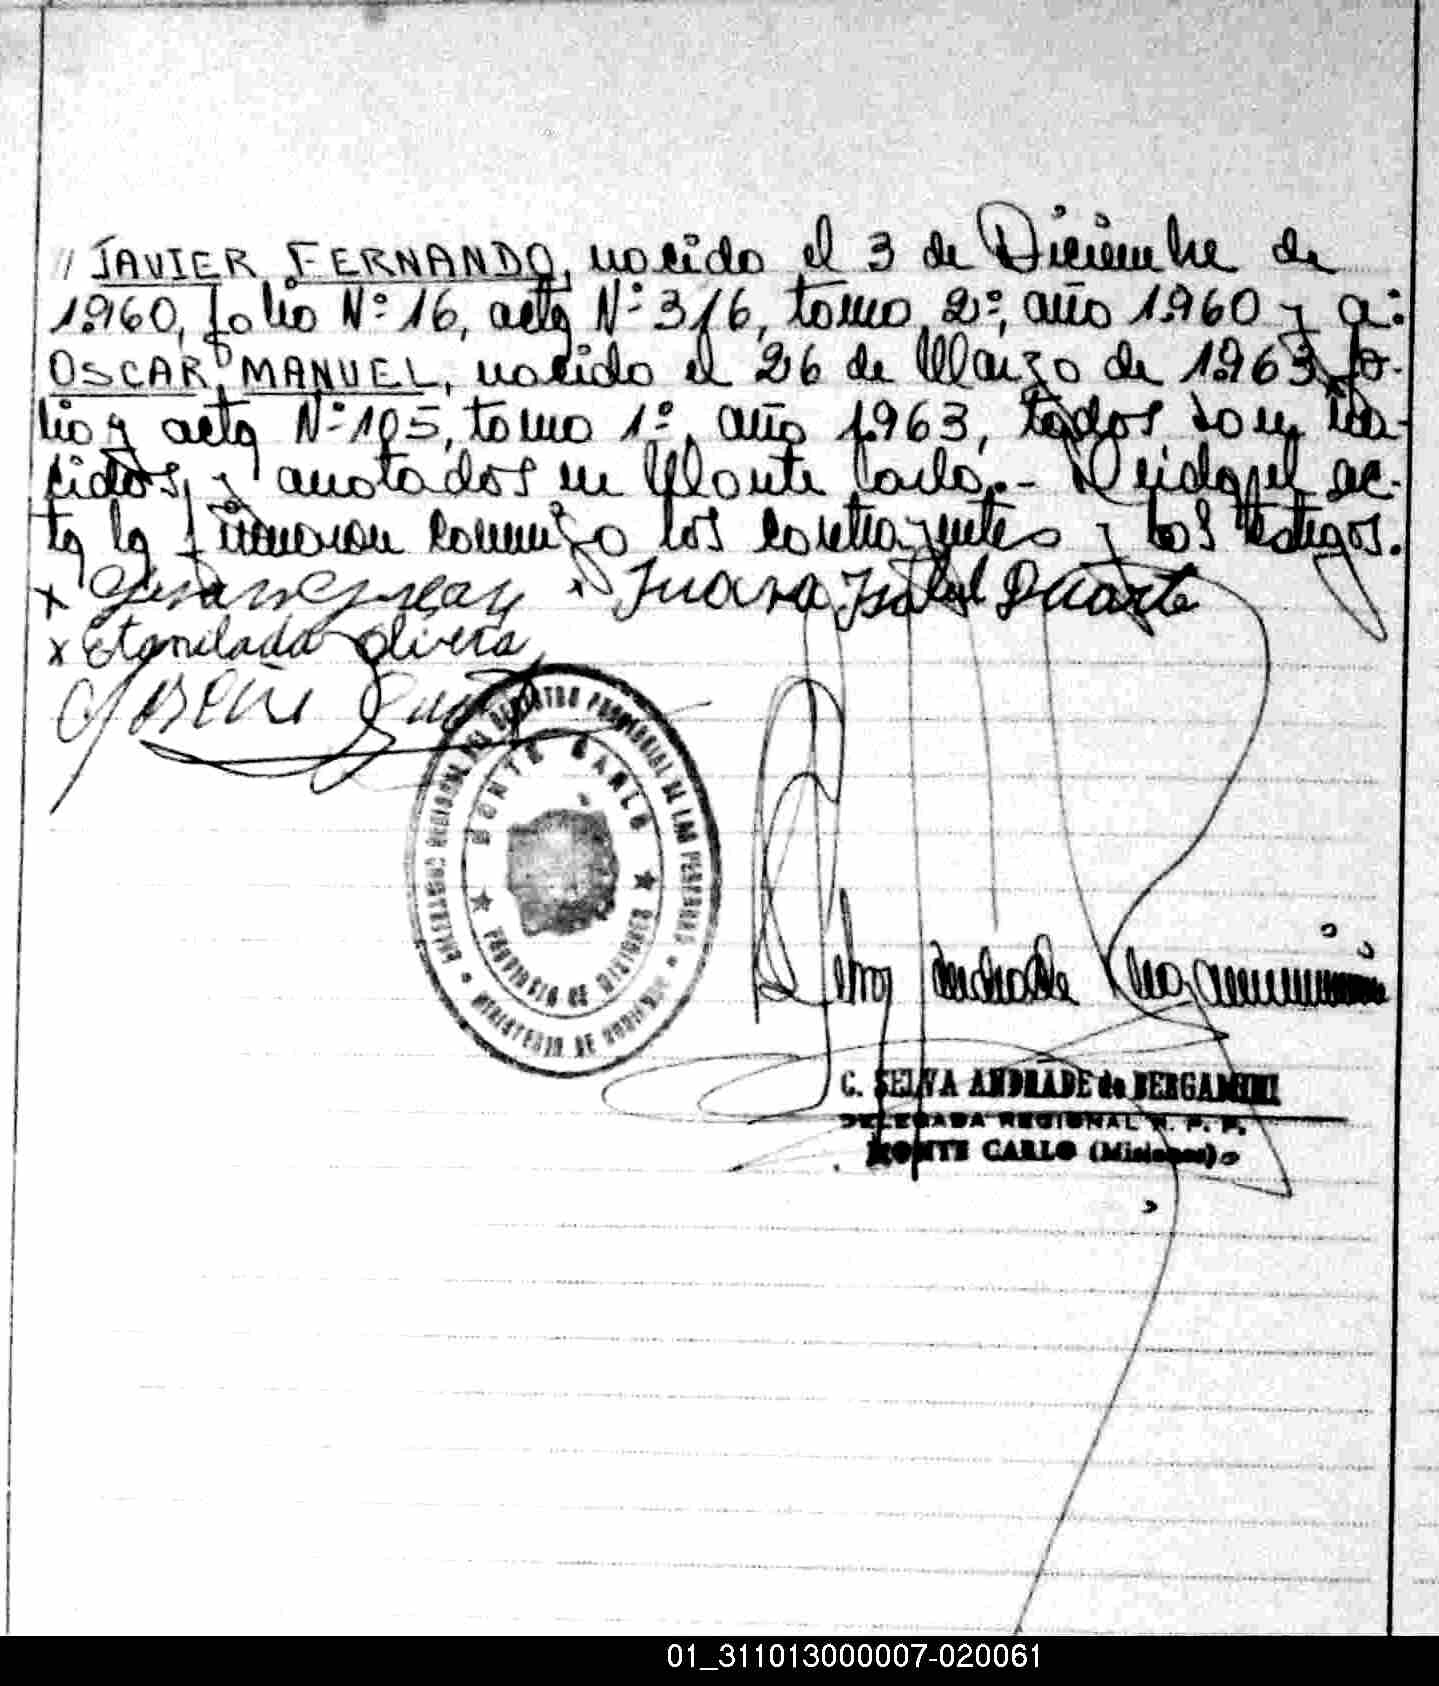 // JAVIER FERNANDO, nacido el 3 de Diciembre de
1960, folio Nº 16, acta Nº 316, tomo 2º, año 1960 y a:
OSCAR MANUEL, nacido el 26 de Marzo de 1963, fo-
lio y acta Nº 105, tomo 1º, año 1963, todos son na-
cidos y anotados en Monte Carlo.- Leida el ac-
ta la firmaron conmigo los contrayentes y los testigos.
x Juana Isabel Duarte
x Etanilada Olivera
DIRECCION REGIONAL DEL REGISTRO PROVINCIAL DE LAS PERSONAS
MONTE CARLO
PROVINCIA DE MISIONES
MINISTERIO DE GOBIERNO
Selva Andrade Bergamini
C. SELVA ANDRADE de BERGAMINI
DELEGADA REGIONAL R. P. P.
MONTE CARLO (Misiones)
01_311013000007-020061